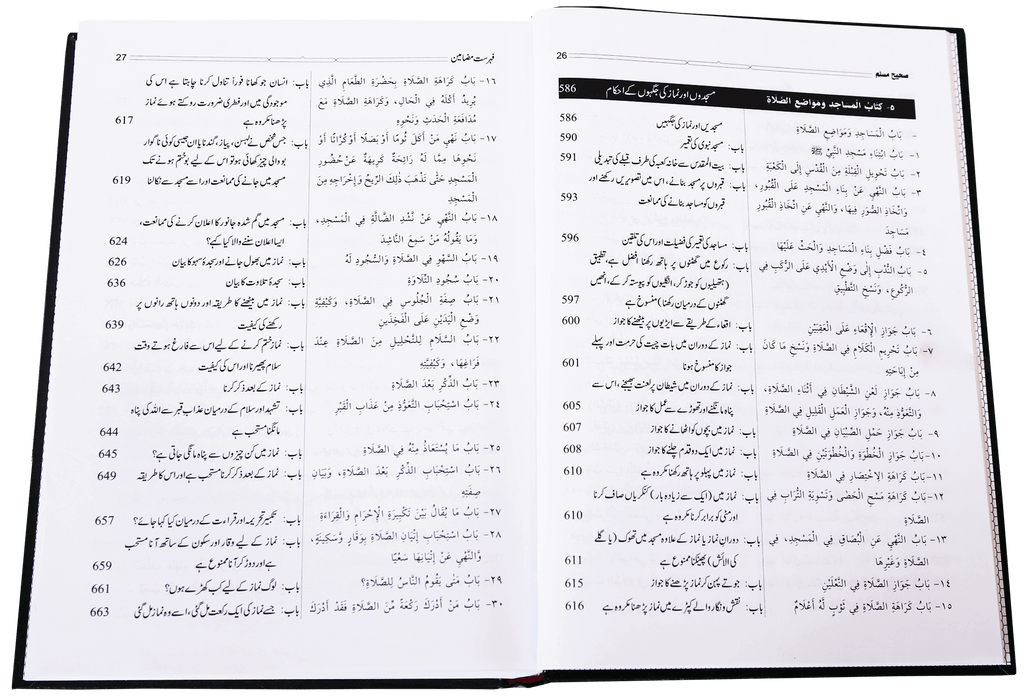 26
صحیح مسلم
٥- كتابُ المَساجد ومواضع الصَّلاة مسجدوں اور نماز کی جگہوں کے احکام 586
- بَابُ الْمَسَاجِدِ وَمَوَاضِعِ الصَّلَاةِ مسجدیں اور نماز کی جگہیں 586
١- بَابُ ابْتِنَاءِ مَسْجِدِ النَّبِيِّ ﷺ باب: مسجد نبوی کی تعمیر 590
٢- بَابُ تَحْوِيلِ الْقِبْلَةِ مِنَ الْقُدْسِ إِلَى الْكَعْبَةِ باب: بیت المقدس سے خانہ کعبہ کی طرف قبلے کی تبدیلی 591
٣- بَابُ النَّهْيِ عَنْ بِنَاءِ الْمَسْجِدِ عَلَى الْقُبُورِ، باب: قبروں پر مسجد بنانے، اس میں تصویریں رکھنے اور
وَاتِّخَاذِ الصُّوَرِ فِيهَا، وَالنَّهْيِ عَنِ اتِّخَاذِ الْقُبُورِ قبروں کو مساجد بنانے کی ممانعت 593
مَسَاجِدَ
٤- بَابُ فَضْلِ بِنَاءِ الْمَسَاجِدِ وَالْحَثِّ عَلَيْهَا باب: مساجد کی تعمیر کی فضیلت اور اس کی تلقین 596
٥- بَابُ النَّدْبِ إِلَى وَضْعِ الْأَيْدِي عَلَى الرُّكَبِ فِي باب: رکوع میں گھٹنوں پر ہاتھ رکھنا افضل ہے، تطبیق
الرُّكُوعِ، وَنَسْخِ التَّطْبِيقِ (ہتھیلیوں کو جوڑ کر، انگلیوں کو پیوستہ کر کے، انھیں
گھٹنوں کے درمیان رکھنا) منسوخ ہے 597
٦- بَابُ جَوَازِ الْإِقْعَاءِ عَلَى الْعَقِبَيْنِ باب: اقعاء کے طریقے سے ایڑیوں پر بیٹھنے کا جواز 600
٧- بَابُ تَحْرِيمِ الْكَلَامِ فِي الصَّلَاةِ وَنَسْخِ مَا كَانَ باب: نماز کے دوران میں بات چیت کی حرمت اور پہلے
مِنْ إِبَاحَتِهِ جواز کا منسوخ ہونا 601
٨- بَابُ جَوَازِ لَعْنِ الشَّيْطَانِ فِي أَثْنَاءِ الصَّلَاةِ، باب: نماز کے دوران میں شیطان پر لعنت بھیجنے، اس سے
وَالتَّعَوُّذِ مِنْهُ، وَجَوَازِ الْعَمَلِ الْقَلِيلِ فِي الصَّلَاةِ پناہ مانگنے اور تھوڑے سے عمل کا جواز 605
٩- بَابُ جَوَازِ حَمْلِ الصِّبْيَانِ فِي الصَّلَاةِ باب: نماز میں بچوں کو اٹھانے کا جواز 607
١٠- بَابُ جَوَازِ الْخُطْوَةِ وَالْخُطْوَتَيْنِ فِي الصَّلَاةِ باب: نماز میں ایک دو قدم چلنے کا جواز 608
١١- بَابُ كَرَاهَةِ الِاخْتِصَارِ فِي الصَّلَاةِ باب: نماز میں پہلو پر ہاتھ رکھنا مکروہ ہے 610
١٢- بَابُ كَرَاهَةِ مَسْحِ الْحَصٰى وَتَسْوِيَةِ التُّرَابِ فِي باب: نماز میں (ایک سے زیادہ بار) کنکریاں صاف کرنا
الصَّلَاةِ اور مٹی کو برابر کرنا مکروہ ہے 610
١٣- بَابُ النَّهْيِ عَنِ الْبُصَاقِ فِي الْمَسْجِدِ، فِي باب: دوران نماز یا نماز کے علاوہ مسجد میں تھوک (یا گلے
الصَّلَاةِ وَغَيْرِهَا کی الائش) پھینکنا ممنوع ہے 611
١٤- بَابُ جَوَازِ الصَّلَاةِ فِي النَّعْلَيْنِ باب: جوتے پہن کر نماز پڑھنے کا جواز 615
١٥- بَابُ كَرَاهَةِ الصَّلَاةِ فِي ثَوْبٍ لَهُ أَعْلَامٌ باب: نقش و نگار والے کپڑے میں نماز پڑھنا مکروہ ہے 616
27
فہرست مضامین
١٦- بَابُ كَرَاهَةِ الصَّلَاةِ بِحَضْرَةِ الطَّعَامِ الَّذِي باب: انسان جو کھانا فوراً تناول کرنا چاہتا ہے اس کی
يُرِيدُ أَكْلَهُ فِي الْحَالِ، وَكَرَاهَةِ الصَّلَاةِ مَعَ موجودگی میں اور فطری ضرورت روکتے ہوئے نماز
مُدَافَعَةِ الْحَدَثِ وَنَحْوِهِ پڑھنا مکروہ ہے 617
١٧- بَابُ نَهْيِ مَنْ أَكَلَ ثُومًا أَوْ بَصَلًا أَوْ كُرَّاثًا أَوْ باب: جس شخص نے لہسن، پیاز، گندنا یا ان جیسی کوئی ناگوار
نَحْوِهَا مِمَّا لَهُ رَائِحَةٌ كَرِيهَةٌ عَنْ حُضُورِ بو والی چیز کھائی ہو تو اس کے لیے بو ختم ہونے تک
الْمَسْجِدِ حَتَّى تَذْهَبَ ذٰلِكَ الرِّيحُ وَإِخْرَاجِهِ مِنَ مسجد میں جانے کی ممانعت اور اسے مسجد سے نکالنا 619
الْمَسْجِدِ
١٨- بَابُ النَّهْيِ عَنْ نَشْدِ الضَّالَّةِ فِي الْمَسْجِدِ، باب: مسجد میں گم شدہ جانور کا اعلان کرنے کی ممانعت،
وَمَا يَقُولُهُ مَنْ سَمِعَ النَّاشِدَ ایسا اعلان سننے والا کیا کہے؟ 624
١٩- بَابُ السَّهْوِ فِي الصَّلَاةِ وَالسُّجُودِ لَهُ باب: نماز میں بھول جانے اور سجدۂ سہو کا بیان 626
٢٠- بَابُ سُجُودِ التِّلَاوَةِ باب: سجدۂ تلاوت کا بیان 636
٢١- بَابُ صِفَةِ الْجُلُوسِ فِي الصَّلَاةِ، وَكَيْفِيَّةِ باب: نماز میں بیٹھنے کا طریقہ اور دونوں ہاتھ رانوں پر
وَضْعِ الْيَدَيْنِ عَلَى الْفَخِذَيْنِ رکھنے کی کیفیت 639
٢٢- بَابُ السَّلَامِ لِلتَّحْلِيلِ مِنَ الصَّلَاةِ عِنْدَ باب: نماز ختم کرنے کے لیے اس سے فارغ ہوتے وقت
فَرَاغِهَا، وَكَيْفِيَّتِهِ سلام پھیرنا اور اس کی کیفیت 642
٢٣- بَابُ الذِّكْرِ بَعْدَ الصَّلَاةِ باب: نماز کے بعد ذکر کرنا 643
٢٤- بَابُ اسْتِحْبَابِ التَّعَوُّذِ مِنْ عَذَابِ الْقَبْرِ باب: تشہد اور سلام کے درمیان عذاب قبر سے اللہ کی پناہ
مانگنا مستحب ہے 644
٢٥- بَابُ مَا يُسْتَعَاذُ مِنْهُ فِي الصَّلَاةِ باب: نماز میں کن چیزوں سے پناہ مانگی جاتی ہے؟ 645
٢٦- بَابُ اسْتِحْبَابِ الذِّكْرِ بَعْدَ الصَّلَاةِ، وَبَيَانِ باب: نماز کے بعد ذکر کرنا مستحب ہے اور اس کا طریقہ 649
صِفَتِهِ
٢٧- بَابُ مَا يُقَالُ بَيْنَ تَكْبِيرَةِ الْإِحْرَامِ وَالْقِرَاءَةِ باب: تکبیر تحریمہ اور قراءت کے درمیان کیا کہا جائے؟ 657
٢٨- بَابُ اسْتِحْبَابِ إِتْيَانِ الصَّلَاةِ بِوَقَارٍ وَسَكِينَةٍ، باب: نماز کے لیے وقار اور سکون کے ساتھ آنا مستحب
وَالنَّهْيِ عَنْ إِتْيَانِهَا سَعْيًا ہے اور دوڑ کر آنا ممنوع ہے 659
٢٩- بَابُ مَتَى يَقُومُ النَّاسُ لِلصَّلَاةِ؟ باب: لوگ نماز کے لیے کب کھڑے ہوں؟ 661
٣٠- بَابُ مَنْ أَدْرَكَ رَكْعَةً مِّنَ الصَّلَاةِ فَقَدْ أَدْرَكَ باب: جسے نماز کی ایک رکعت مل گئی، اسے وہ نماز مل گئی 663